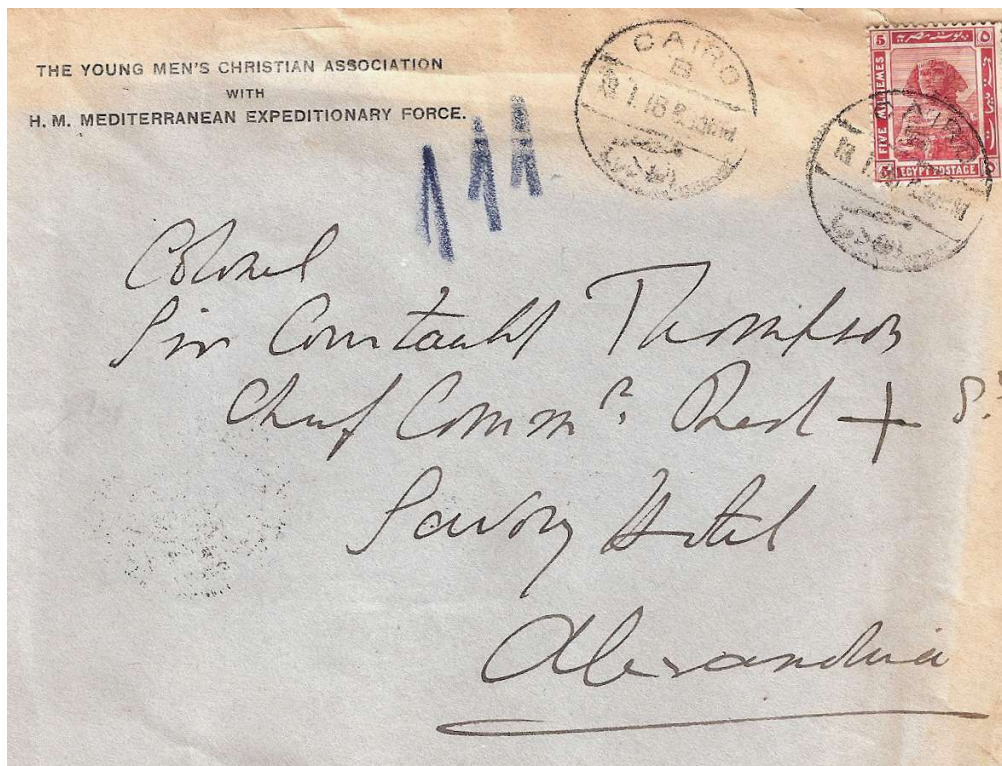 THE YOUNG MEN'S CHRISTIAN ASSOCIATION
WITH
H. M. MEDITERRANEAN EXPEDITIONARY FORCE.
CAIRO
B
1.18
5 بوستة مصرية ٥
FIVE MILLIEMES
5 EGYPT POSTAGE
CAIRO
Colonel
Sir Courtauld Thompson
Chief Commr. Red +
Savoy Hotel
Alexandria